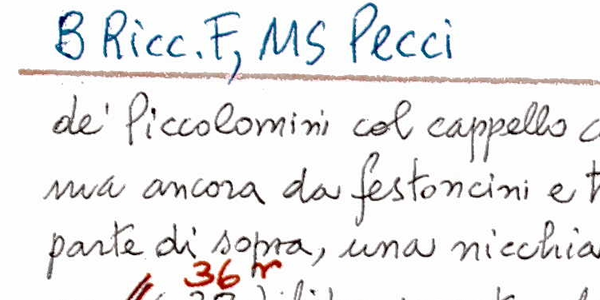 B Ricc. F, MS Pecci
de' Piccolomini col cappello
ancora da festoncini e
parte di sopra, una nicchia
36 r